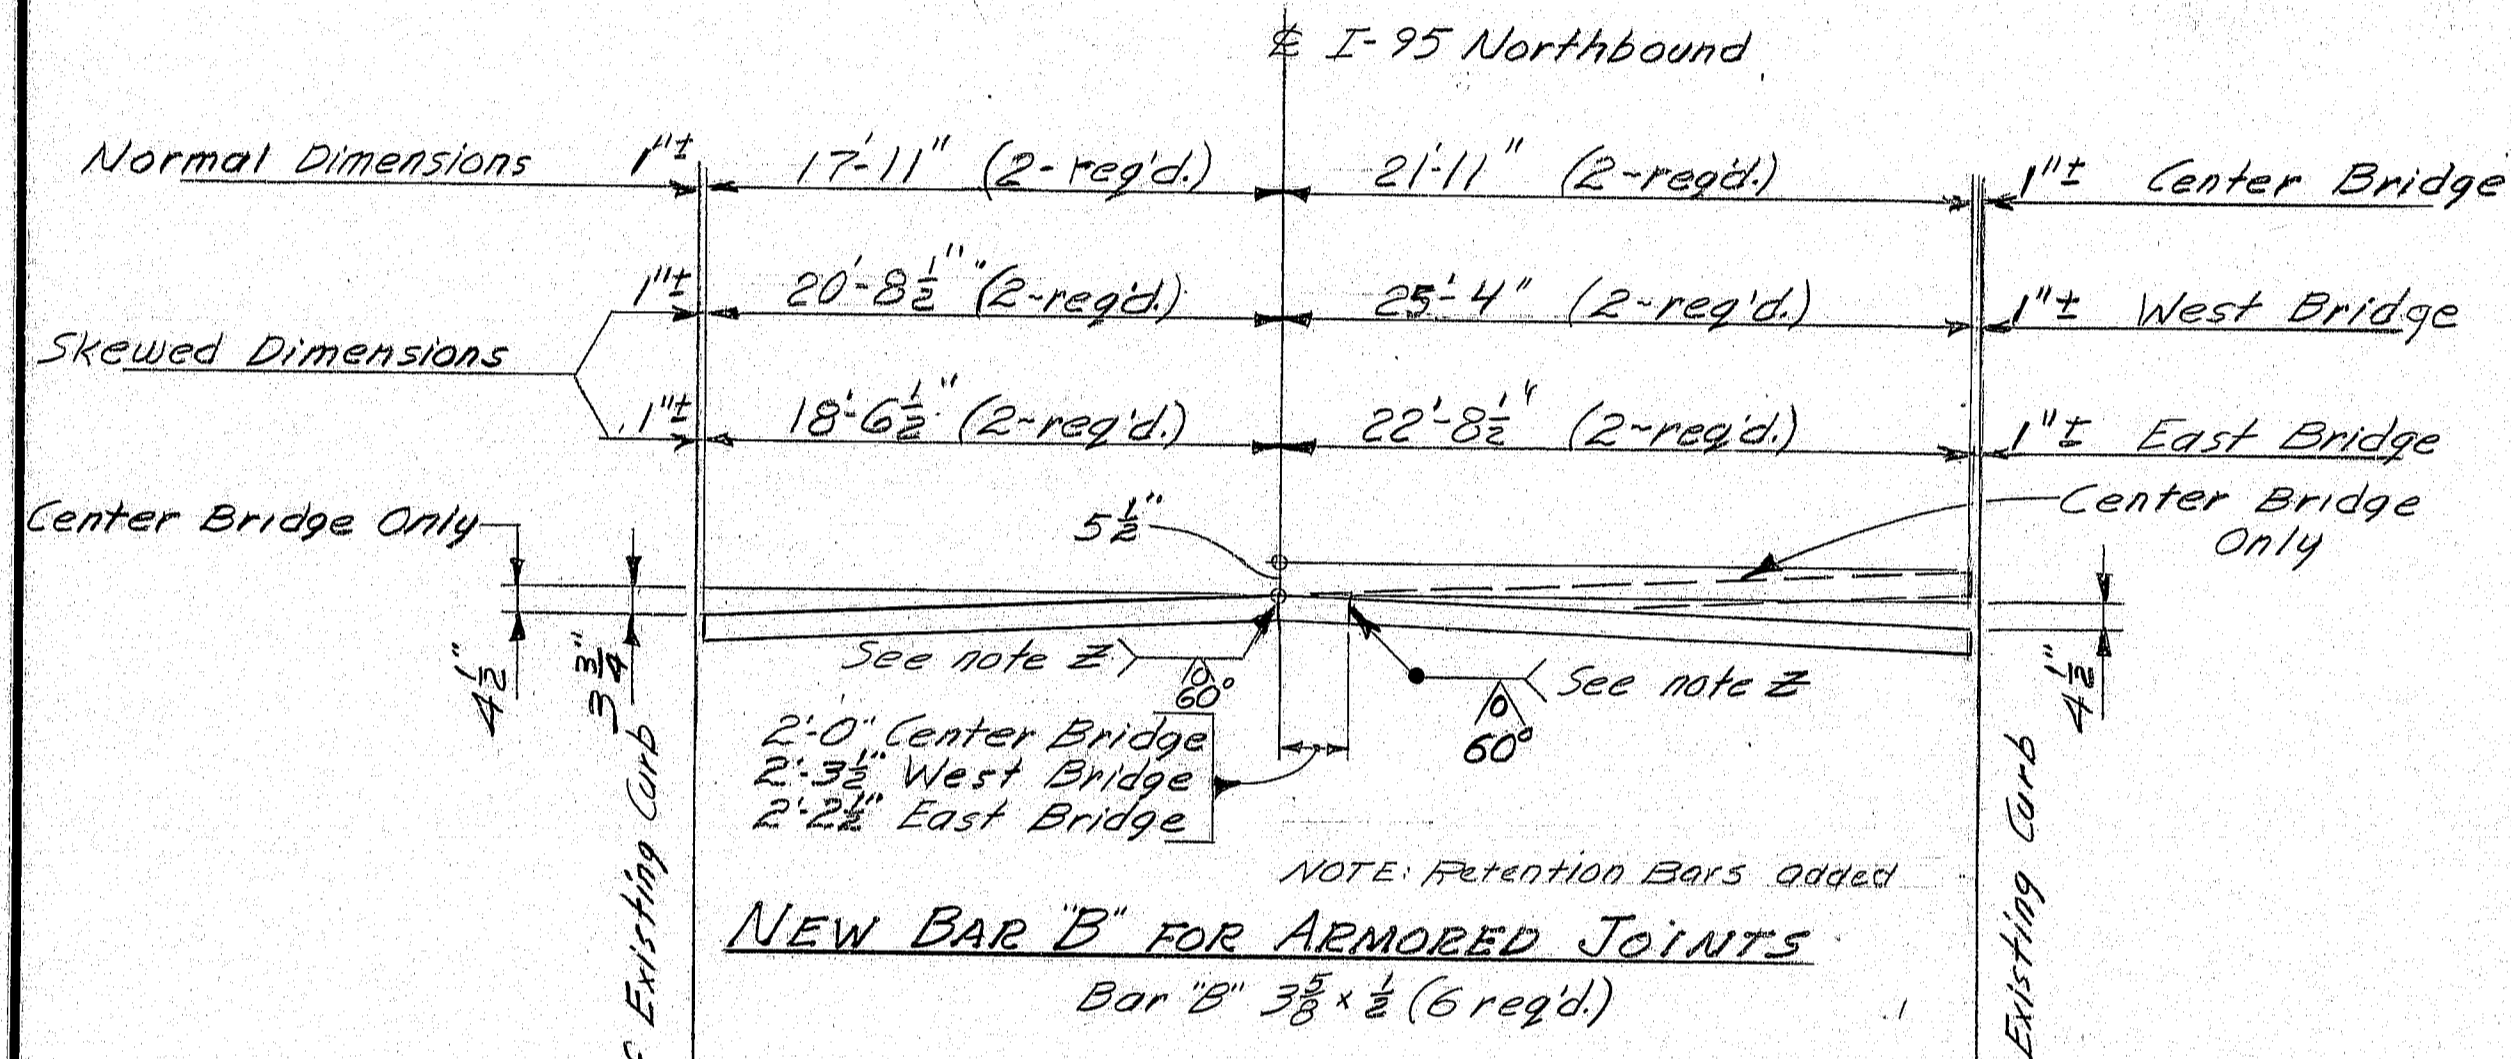 ℄ I-95 Northbound
Normal Dimensions 1"± 17'-11" (2-req'd.) 21'-11" (2-req'd.) 1"± Center Bridge
1"± 20'-8½" (2-req'd.) 25'-4" (2-req'd.) 1"± West Bridge
Skewed Dimensions
1"± 18'-6½" (2-req'd.) 22'-8½" (2-req'd.) 1"± East Bridge
Center Bridge Only
5½"
Center Bridge
Only
4½"
3¾"
See note Z
60°
See note Z
60°
4½"
2'-0" Center Bridge
2'-3½" West Bridge
2'-2½" East Bridge
Existing Curb
Existing Curb
NOTE: Retention Bars added
NEW BAR "B" FOR ARMORED JOINTS
Bar "B" 3⅝ x ½ (6 req'd.)